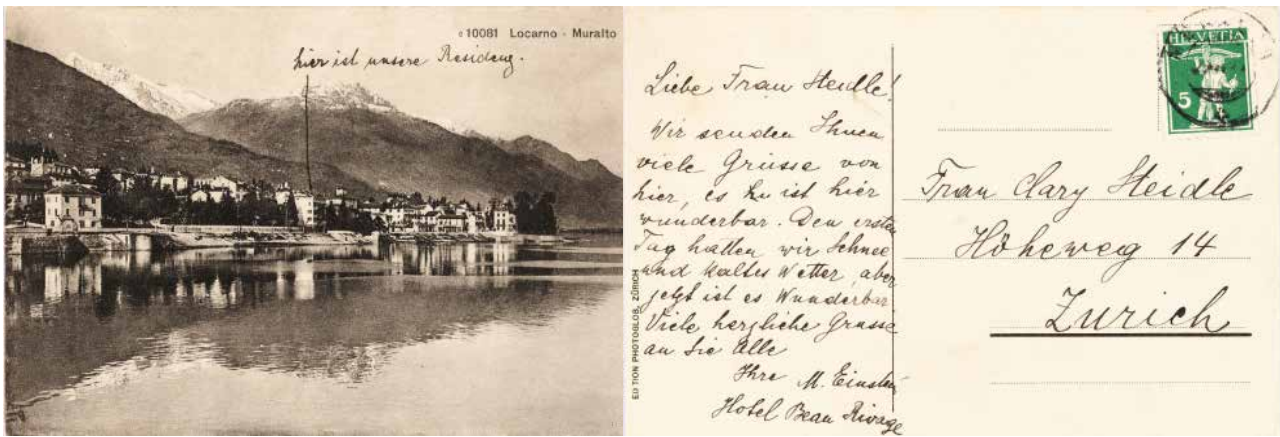 c 10081 Locarno - Muralto
hier ist unsere Residenz.
Liebe Frau Heidle!
Wir senden Ihnen
viele Grüsse von
hier, es ist hier
wunderbar. Den ersten
Tag hatten wir Schnee
und kaltes Wetter, aber
jetzt ist es Wunderbar
Viele herzliche Grusse
an Sie Alle
Ihre M. Einstein
Hotel Beau Rivage
EDITION PHOTOGLOB, ZÜRICH
HELVETIA
5
Frau Clary Heidle
Höheweg 14
Zurich